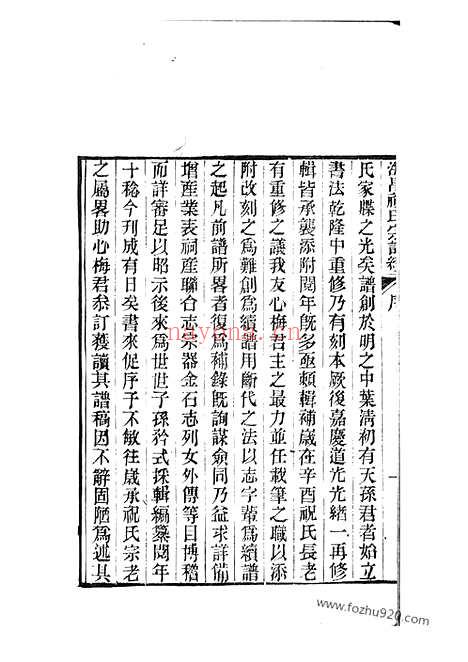 海昌祝氏宗譜 序
氏家牒之光矣譜創於明之中葉清初有天孫君者始立
書法乾隆中重修乃有刻本厥後嘉慶道光光緒一再修
輯皆承襲添附閱年既多亟賴輯補歲在辛酉祝氏長老
有重修之議我友心梅君主之最力並任裁筆之職以添
附改刻之為難創為續譜用斷代之法以志字輩為續譜
之起凡前譜所畧者復為補錄既詢謀僉同乃益求詳備
增產業表祠產聯合志樂器金石志列女外傳等目博稽
而詳審足以昭示後來為世世子孫矜式採輯編纂閱年
十稔今刊成有日矣書來促序予不敏往歲承祝氏宗老
之屬畧助心梅君叅訂獲讀其譜稿因不辭固陋為述其
nayona.cn
www.fozhu920.com